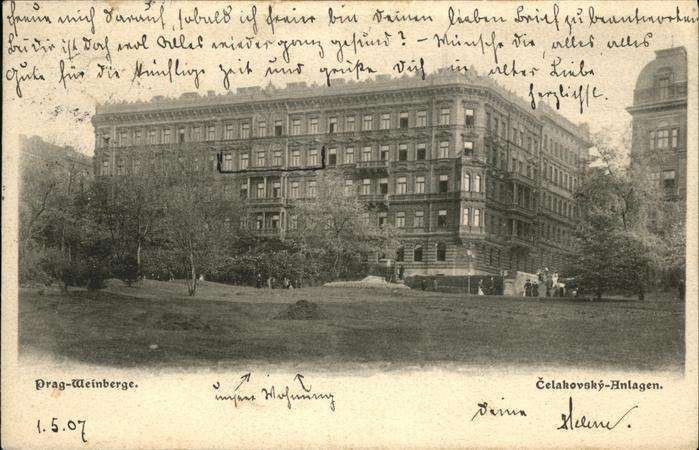 freue mich darauf, sobald ich freier bin Deinen lieben Brief zu beantworten
Bei dir ist doch wol Alles wieder ganz gesund? - Wünsche dir alles alles
Gute für die künftige Zeit und grüße Dich in alter Liebe
herzlichst.
Prag-Weinberge.
Čelakovský-Anlagen.
unsere Wohnung
Deine Helene.
1.5.07